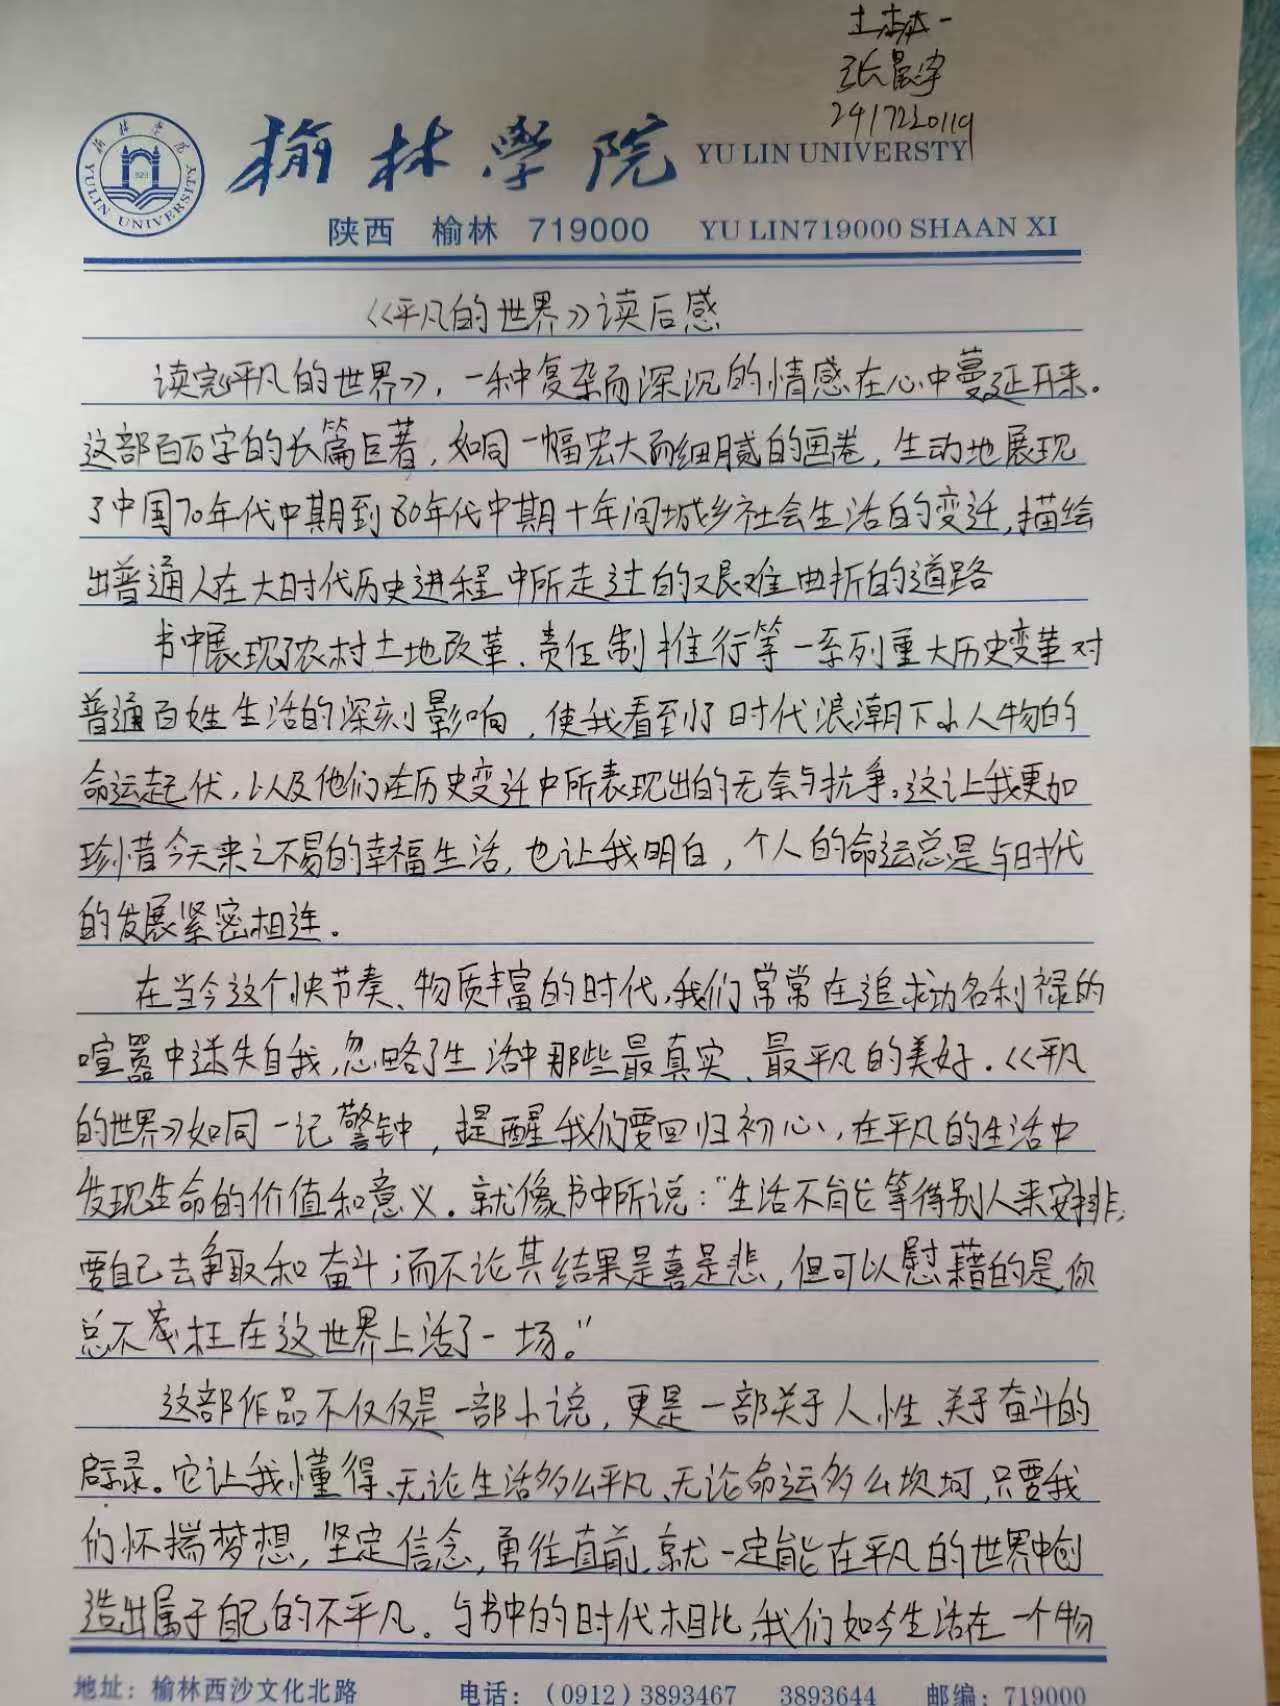 土木本一
张晨宇
2417220119
榆林学院 YU LIN UNIVERSTY
榆林学院
YULIN UNIVERSITY
陕西 榆林 719000 YU LIN719000 SHAAN XI
《平凡的世界》读后感
读完《平凡的世界》，一种复杂而深沉的情感在心中蔓延开来。
这部百万字的长篇巨著，如同一幅宏大而细腻的画卷，生动地展现
了中国70年代中期到80年代中期十年间城乡社会生活的变迁，描绘
出普通人在大时代历史进程中所走过的艰难曲折的道路
书中展现了农村土地改革、责任制推行等一系列重大历史变革对
普通百姓生活的深刻影响，使我看到了时代浪潮下小人物的
命运起伏，以及他们在历史变迁中所表现出的无奈与抗争。这让我更加
珍惜今天来之不易的幸福生活，也让我明白，个人的命运总是与时代
的发展紧密相连。
在当今这个快节奏、物质丰富的时代，我们常常在追求功名利禄的
喧嚣中迷失自我，忽略了生活中那些最真实、最平凡的美好。《平凡
的世界》如同一记警钟，提醒我们要回归初心，在平凡的生活中
发现生命的价值和意义。就像书中所说：“生活不能等待别人来安排，
要自己去争取和奋斗；而不论其结果是喜是悲，但可以慰藉的是你
总不枉在这世界上活了一场。”
这部作品不仅仅是一部小说，更是一部关于人性、关于奋斗的
启示录。它让我懂得、无论生活多么平凡、无论命运多么坎坷，只要我
们怀揣梦想，坚定信念，勇往直前，就一定能在平凡的世界中创
造出属于自己的不平凡。与书中的时代相比，我们如今生活在一个物
地址：榆林西沙文化北路 电话：（0912）3893467 3893644 邮编：719000